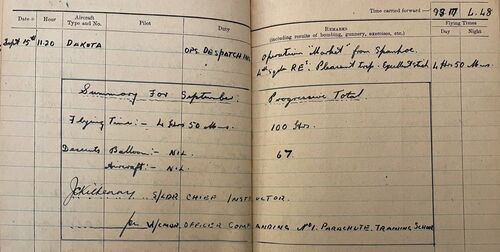 Time carried forward:— 98.17 4.48
Date Hour Aircraft Type and No. Pilot Duty Remarks (including results of bombing, gunnery, exercises, etc.) Flying Times
Day Night
Sept 15th 11.20 DAKOTA OPS. DESPATCH Operation "Market" from Spanhoe.
Sqdn RE's. Pleasant trip. Excellent stick 4 Hrs 50 Mns.
Summary For September. Progressive Total
Flying Time:- 4 Hrs 50 Mns. 100 Hrs.
Descents Balloon:- NIL. 67.
Aircraft:- NIL.
S/LDR CHIEF INSTRUCTOR.
for W/CMDR. OFFICER COMMANDING No 1. PARACHUTE TRAINING SCHOOL